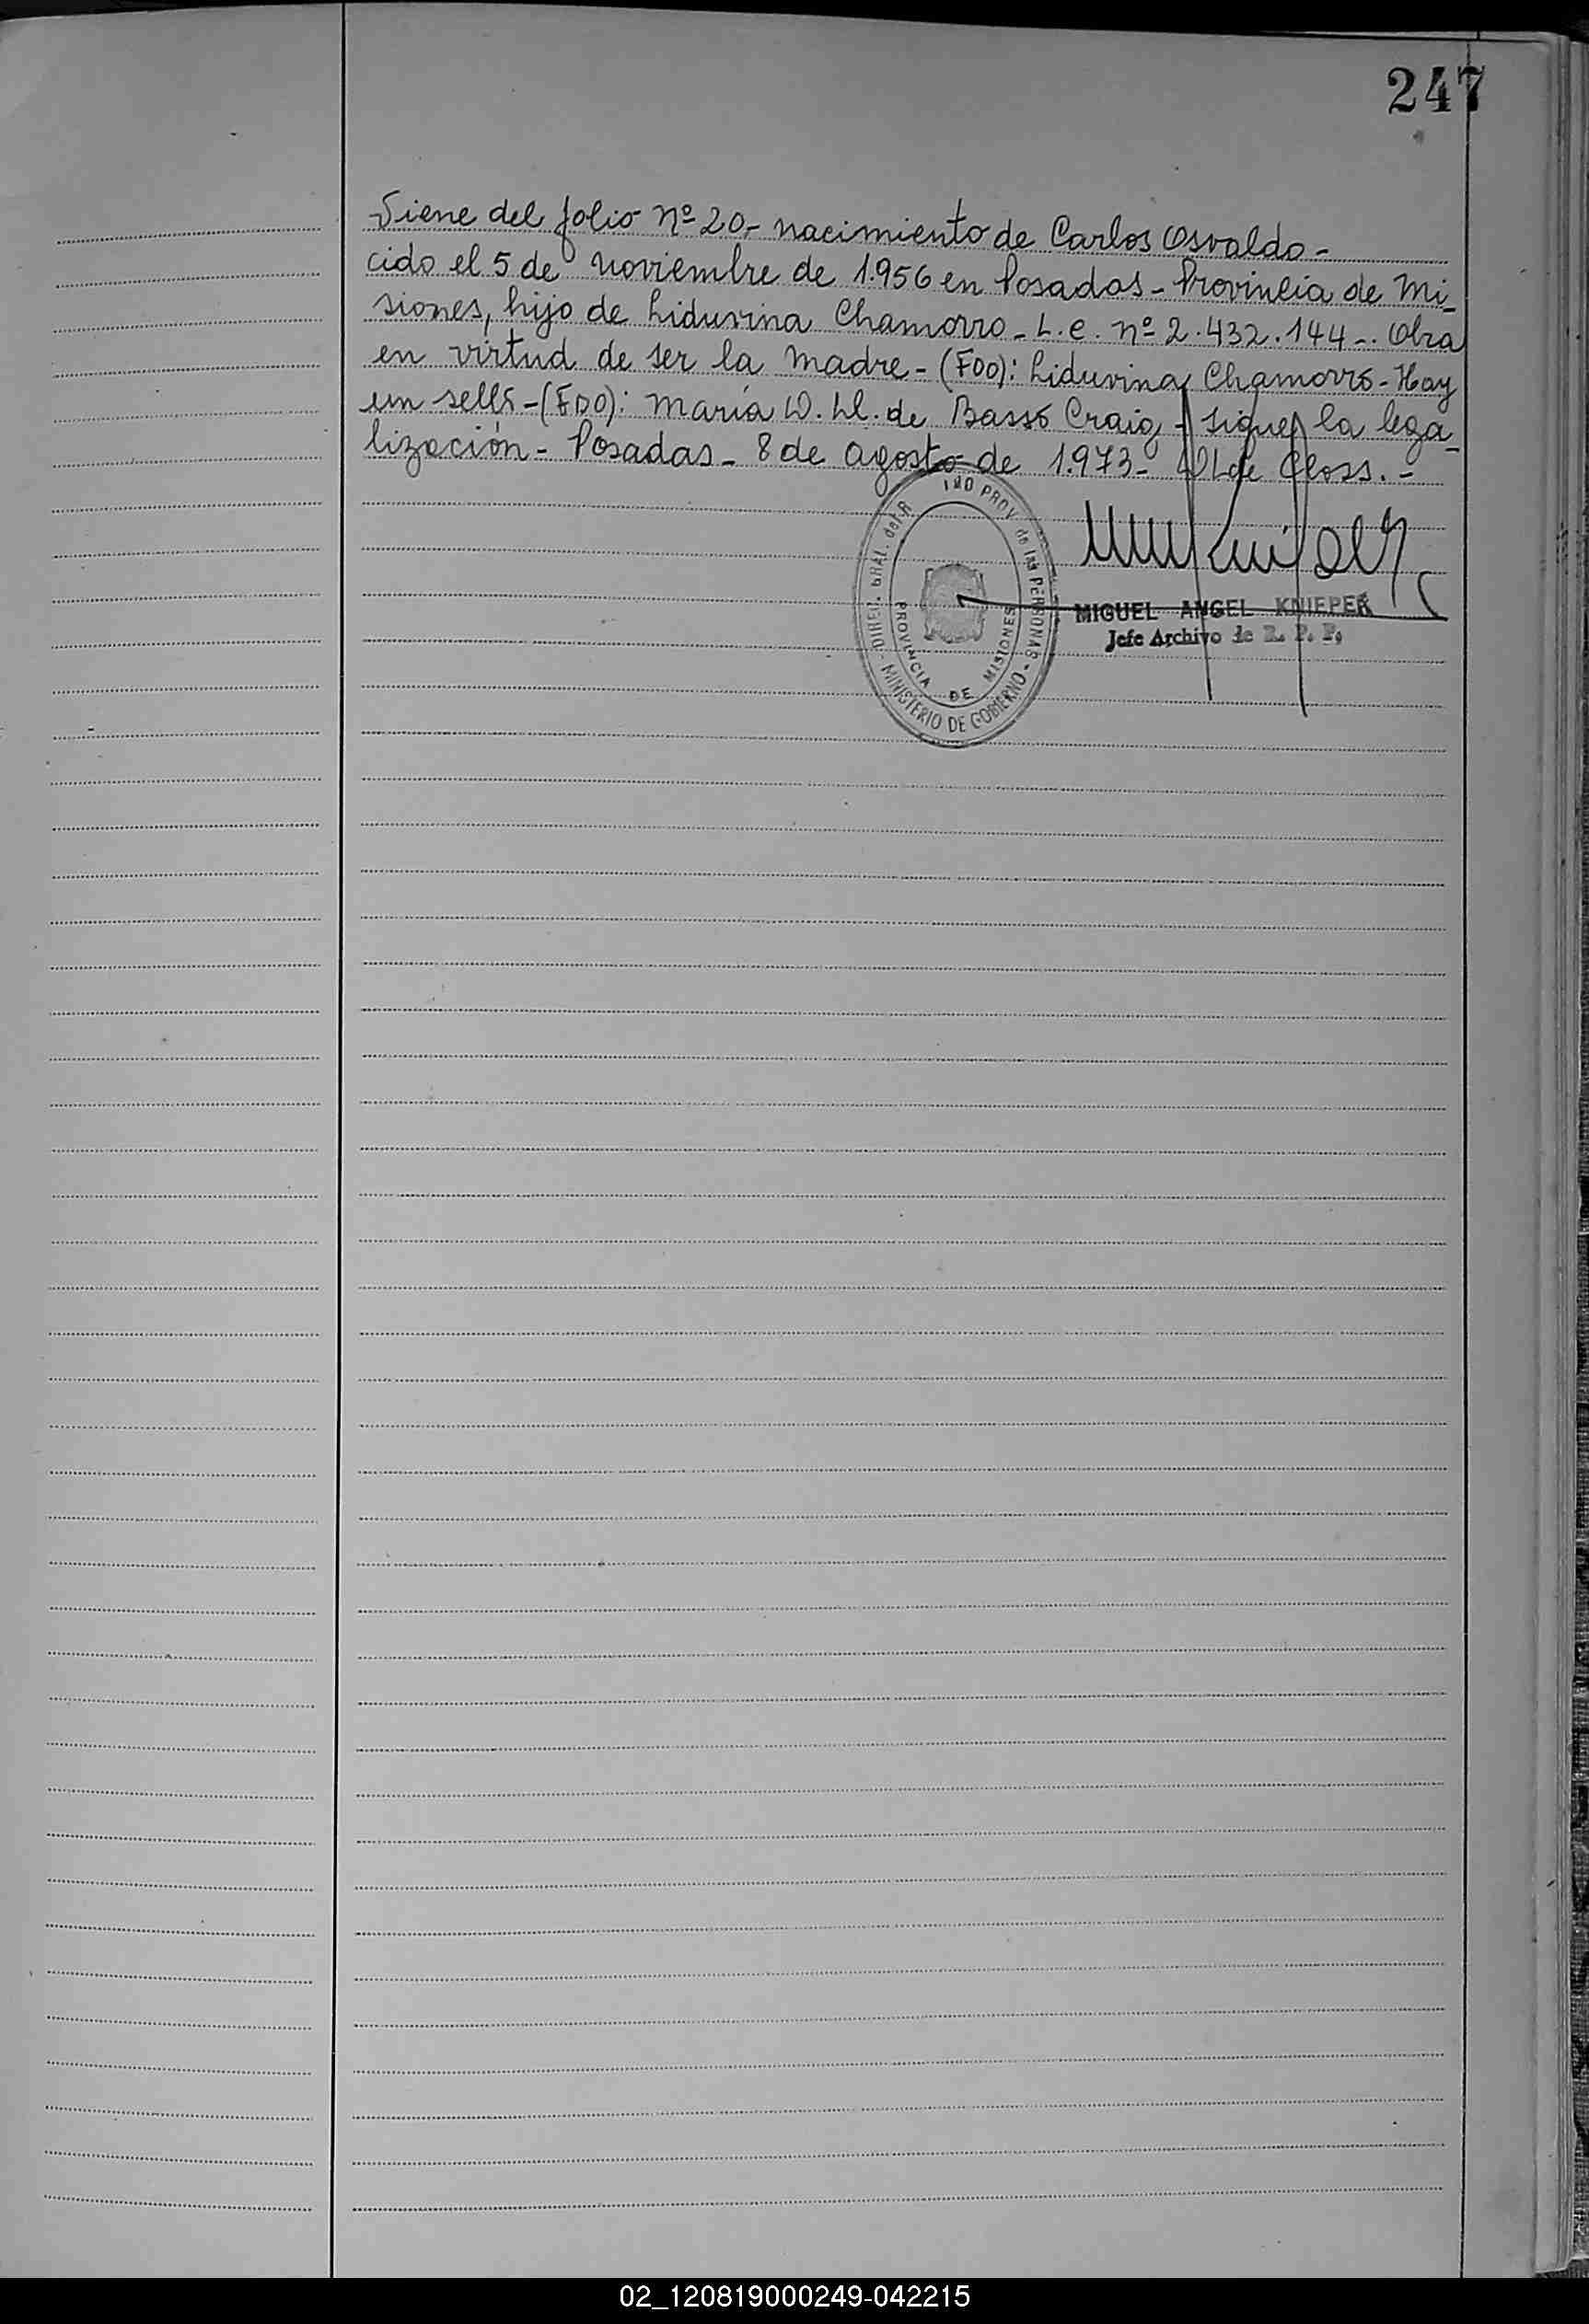 247
Viene del folio nº 20.- nacimiento de Carlos Osvaldo -
cido el 5 de noviembre de 1.956 en Posadas - Provincia de Mi_
siones, hijo de Liduvina Chamorro - L.C. nº 2.432.144 -. Obra
en virtud de ser la madre - (FDO): Liduvina Chamorro - Hay
um sello - (FDO): María W. Ll. de Basso Craig - Sigue la lega_
lización - Posadas - 8 de agosto de 1.973 - de Closs. -
DIREC. GRAL. del R PROV. de las PERSONAS
MINISTERIO DE GOBIERNO
PROVINCIA DE MISIONES
MIGUEL ANGEL KNIEPER
Jefe Archivo de R. P. P.
02_120819000249-042215